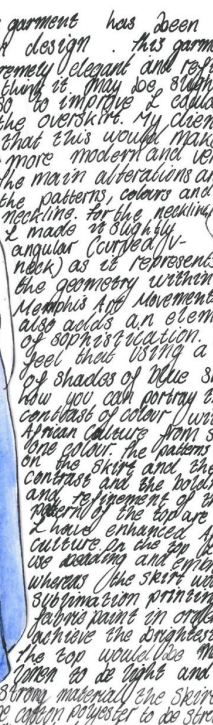 garment has been
design. This garm
remely elegant and ref
think it may be slight
so to improve I could
the overskirt. My clien
that this would make
more modern and ver
the main alterations ar
the patterns, colours and
neckline. For the neckline
I made it slightly
angular (curved V-
neck) as it represents
the geometry within
Memphis Art Movement
also adds an elem
of sophistication.
feel that using a
of shades of blue sh
how you can portray th
contrast of colour wit
African Culture from s
one colour. The patterns
on the skirt and the
contrast and the boldn
and refinement of th
pattern of the top are
I have enhanced
culture. On the top
use beading and embr
whereas the skirt wo
sublimation printin
fabric paint in order
achieve the brightest
the top would be m
linen to be light and
strong material. The skirt
be cotton polyester to be stro